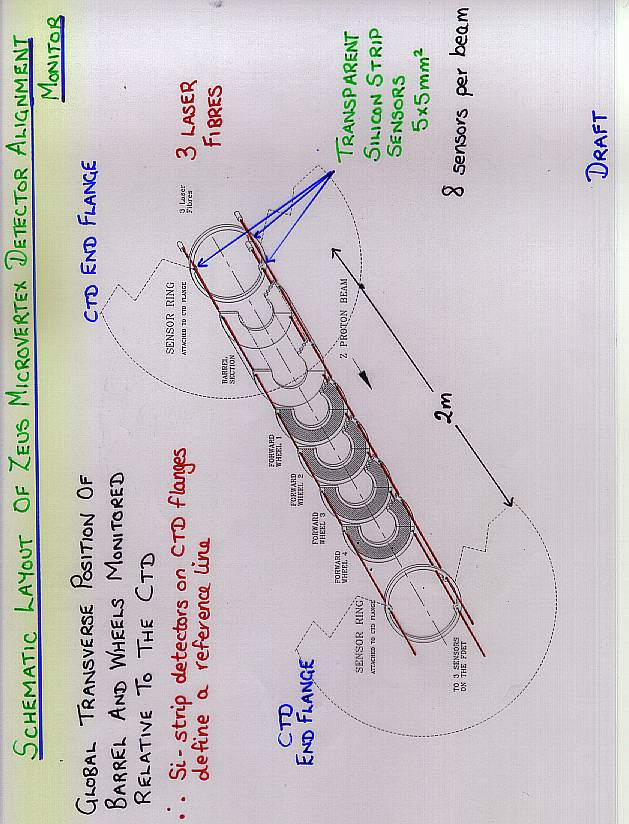 SCHEMATIC LAYOUT OF ZEUS MICROVERTEX DETECTOR ALIGNMENT
MONITOR
GLOBAL TRANSVERSE POSITION OF
BARREL AND WHEELS MONITORED
RELATIVE TO THE CTD
∴ Si-strip detectors on CTD flanges
define a reference line
CTD END FLANGE
3 LASER
FIBRES
TRANSPARENT
SILICON STRIP
SENSORS
5x5mm²
8 sensors per beam
DRAFT
3 Laser
Fibres
SENSOR RING
ATTACHED TO CTD FLANGE
BARREL
SECTION
Z PROTON BEAM
2m
FORWARD
WHEEL 1
FORWARD
WHEEL 2
FORWARD
WHEEL 3
FORWARD
WHEEL 4
SENSOR RING
ATTACHED TO CTD FLANGE
TO 3 SENSORS
ON THE FDET
CTD
END FLANGE